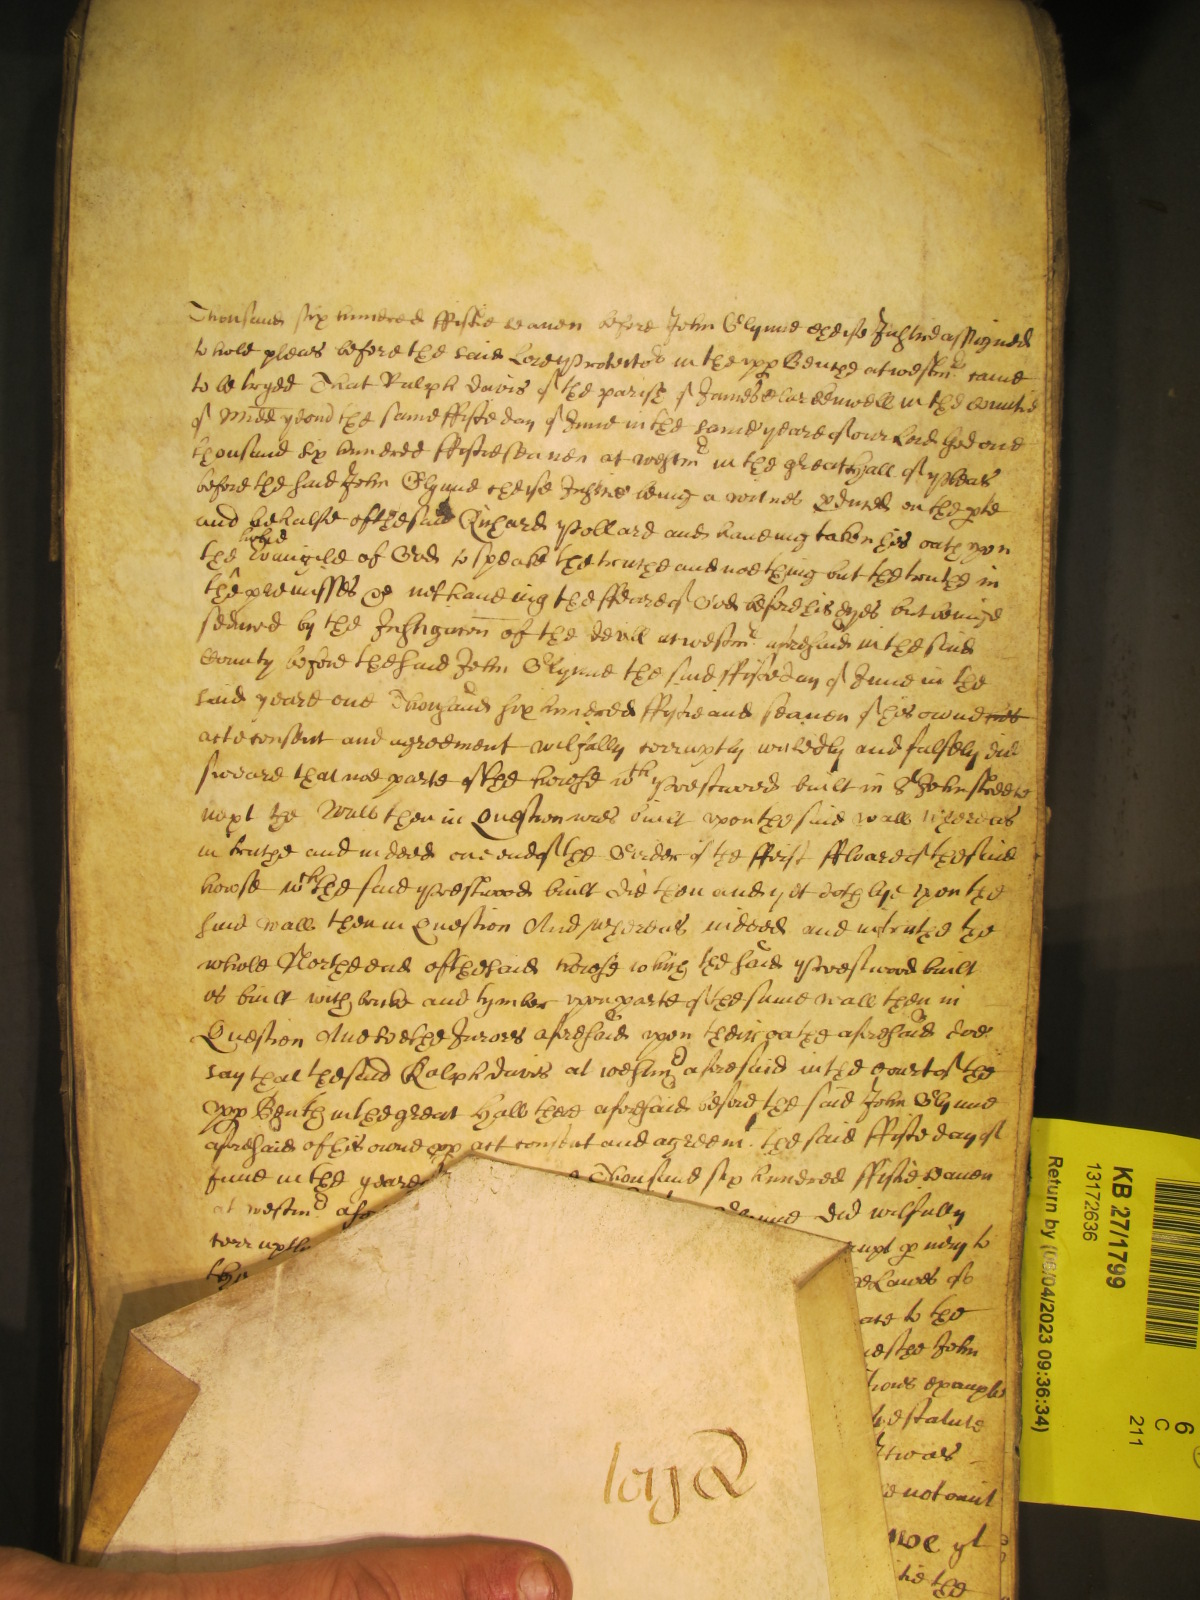 Thousand six hundred ffiftie seaven before John Glynne cheife Justice assigned
to hold pleas before the said Lord Protector in the upp Bench at westmr. came
to be tryed That Ralph Davis of the parish of James Clarkenwell in the countie
of Midd yeom the same ffifte day of June in the same yeare of our Lord God one
thousand six hundred ffiftie seaven at westmr in the great Hall of Pleas
before the said John Glynne cheife Justice being a witnes pduced on the pte
and behalfe of the said Richard Pollard and haveing taken his oath upon
the holie Evangile of God to speake the truthe and noething but the truthe in
the premisses he not haveing the ffeare of God before his Eyes but beinge
seduced by the Instigacon of the devill at westmr aforesaid in the said
County before the said John Glynne the said ffifte day of June in the
said yeare one Thousand six hundred ffiftie and seaven of his owne
acte consent and agreement wilfully corruptly wickedly and falsely did
sweare that noe parte of the howse wch Prestwood built in St John streete
next the Wall then in Question was built upon the said wall whereas
in truthe and indeed one end of the Girder of the ffirst ffloare of the said
howse wch the said Prestwood built did then and yet doth lye upon the
said wall then in Question And whereas indeed and in truthe the
whole Northe end of the said howse which the said Prestwood built
is built with bricke and tymber upon parte of the same wall then in
Question And soe the Jurors aforesaid upon their oathe aforesaid doe
say that the said Ralph Davis at westmr aforesaid in the Court of the
upp Bench in the great Hall there aforesaid before the said John Glynne
aforesaid of his owne pp act consent and agreemt. the said ffifte day of
June in the yeare Thousand six hundred ffiftie seaven
at westmr did wilfully
to
the Lawes of
to the
John
example
statute
was
not omit
we yt
the
KB 27/1799
13172636
Return by (06/04/2023 09:36:34)
6
C
211